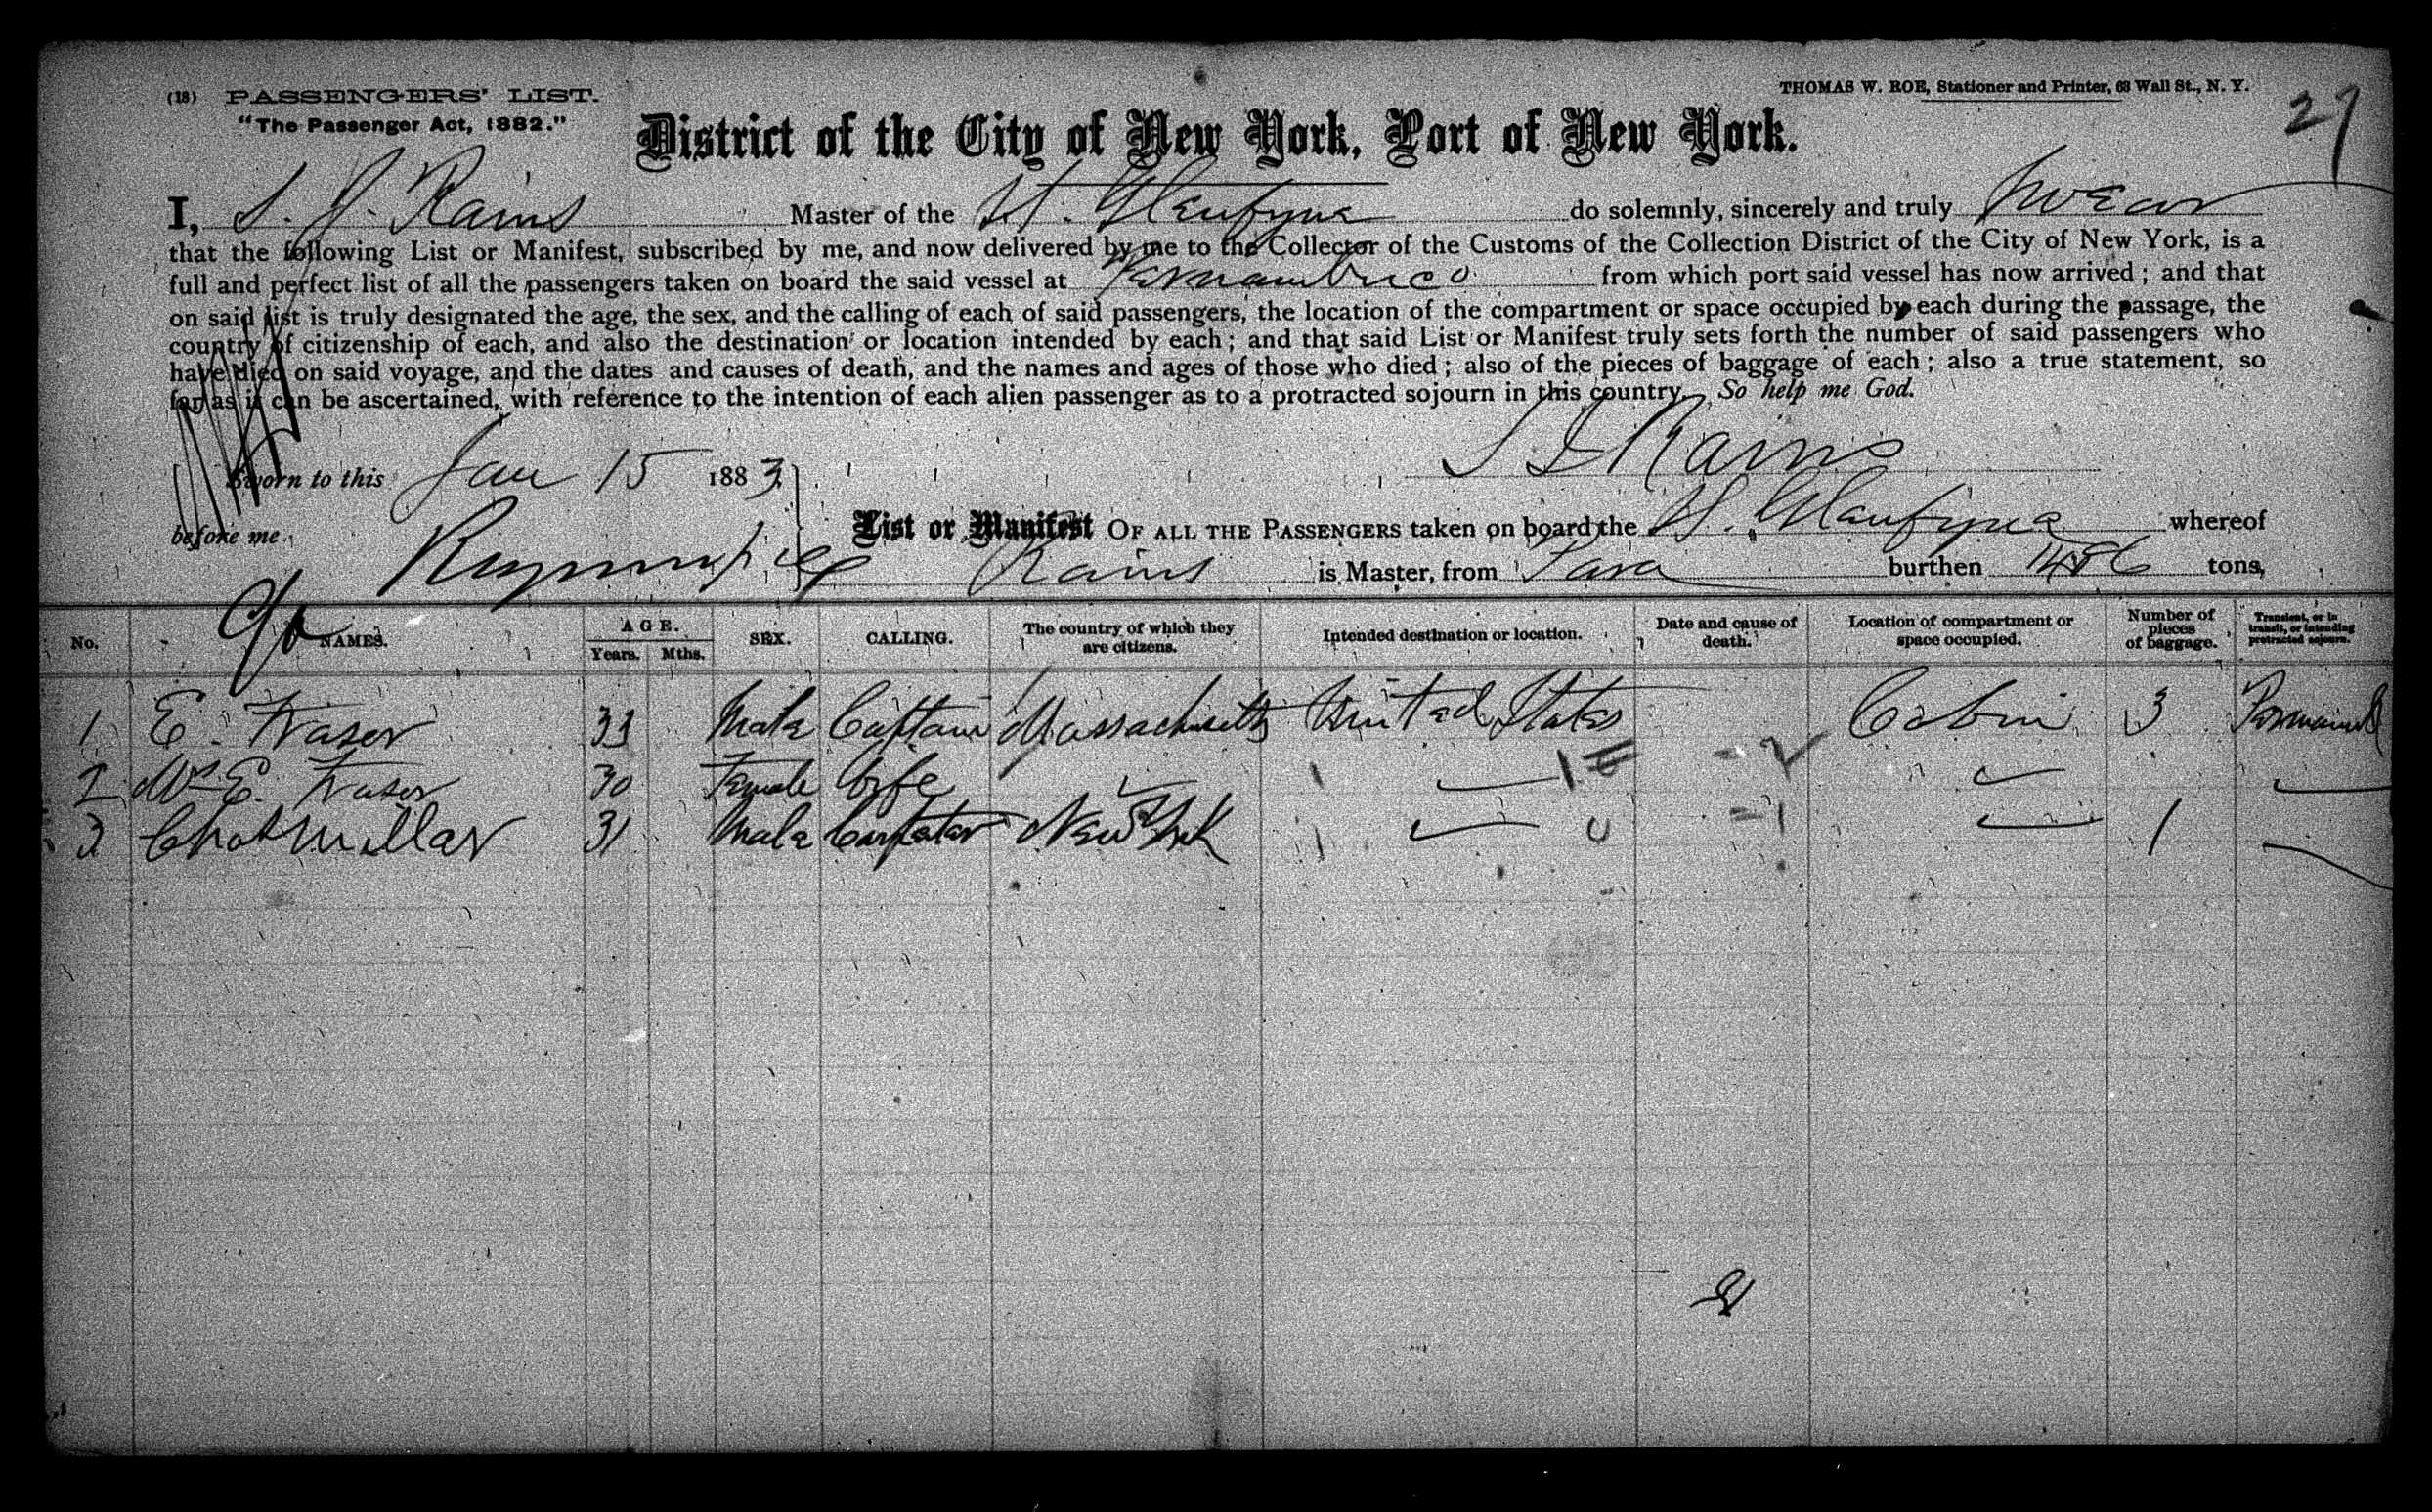 (18) PASSENGERS' LIST.
"The Passenger Act, 1882."
THOMAS W. ROE, Stationer and Printer, 63 Wall St., N. Y.
27
District of the City of New York, Port of New York.
I, S. J. Rains Master of the St. Glenfyne do solemnly, sincerely and truly swear
that the following List or Manifest, subscribed by me, and now delivered by me to the Collector of the Customs of the Collection District of the City of New York, is a
full and perfect list of all the passengers taken on board the said vessel at Pernambuco from which port said vessel has now arrived; and that
on said list is truly designated the age, the sex, and the calling of each of said passengers, the location of the compartment or space occupied by each during the passage, the
country of citizenship of each, and also the destination or location intended by each; and that said List or Manifest truly sets forth the number of said passengers who
have died on said voyage, and the dates and causes of death, and the names and ages of those who died; also of the pieces of baggage of each; also a true statement, so
far as it can be ascertained, with reference to the intention of each alien passenger as to a protracted sojourn in this country. So help me God.
S J Rains
Sworn to this Jan 15 1883
before me
List or Manifest OF ALL THE PASSENGERS taken on board the St. Glenfyne whereof
Rains is Master, from Para burthen 1486 tons,
No. NAMES. AGE. Years. Mths. SEX. CALLING. The country of which they are citizens. Intended destination or location. Date and cause of death. Location of compartment or space occupied. Number of pieces of baggage. Transient, or in transit, or intending protracted sojourn.
1 E. Fraser 33 Male Captain Massachusetts United States Cabin 3 Permanent
2 Mrs E. Fraser 30 Female Wife
3 Chas Millar 31 Male Carpenter New York 1